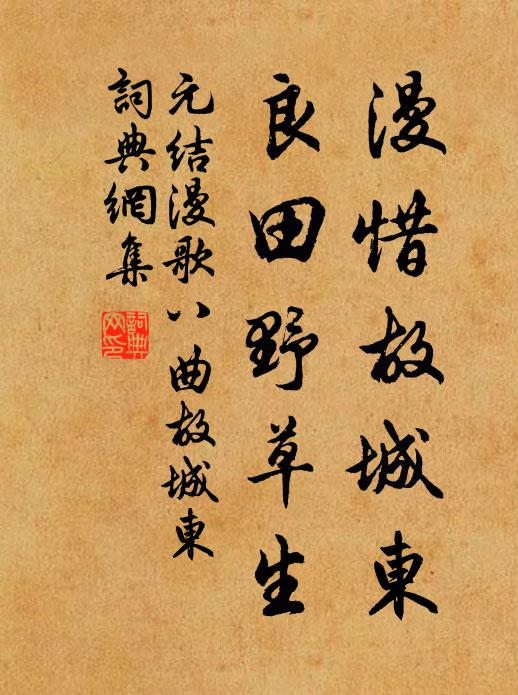 漫惜故城東
良田野草生
元结漫歌八曲故城東
詞典網集
詞典网印